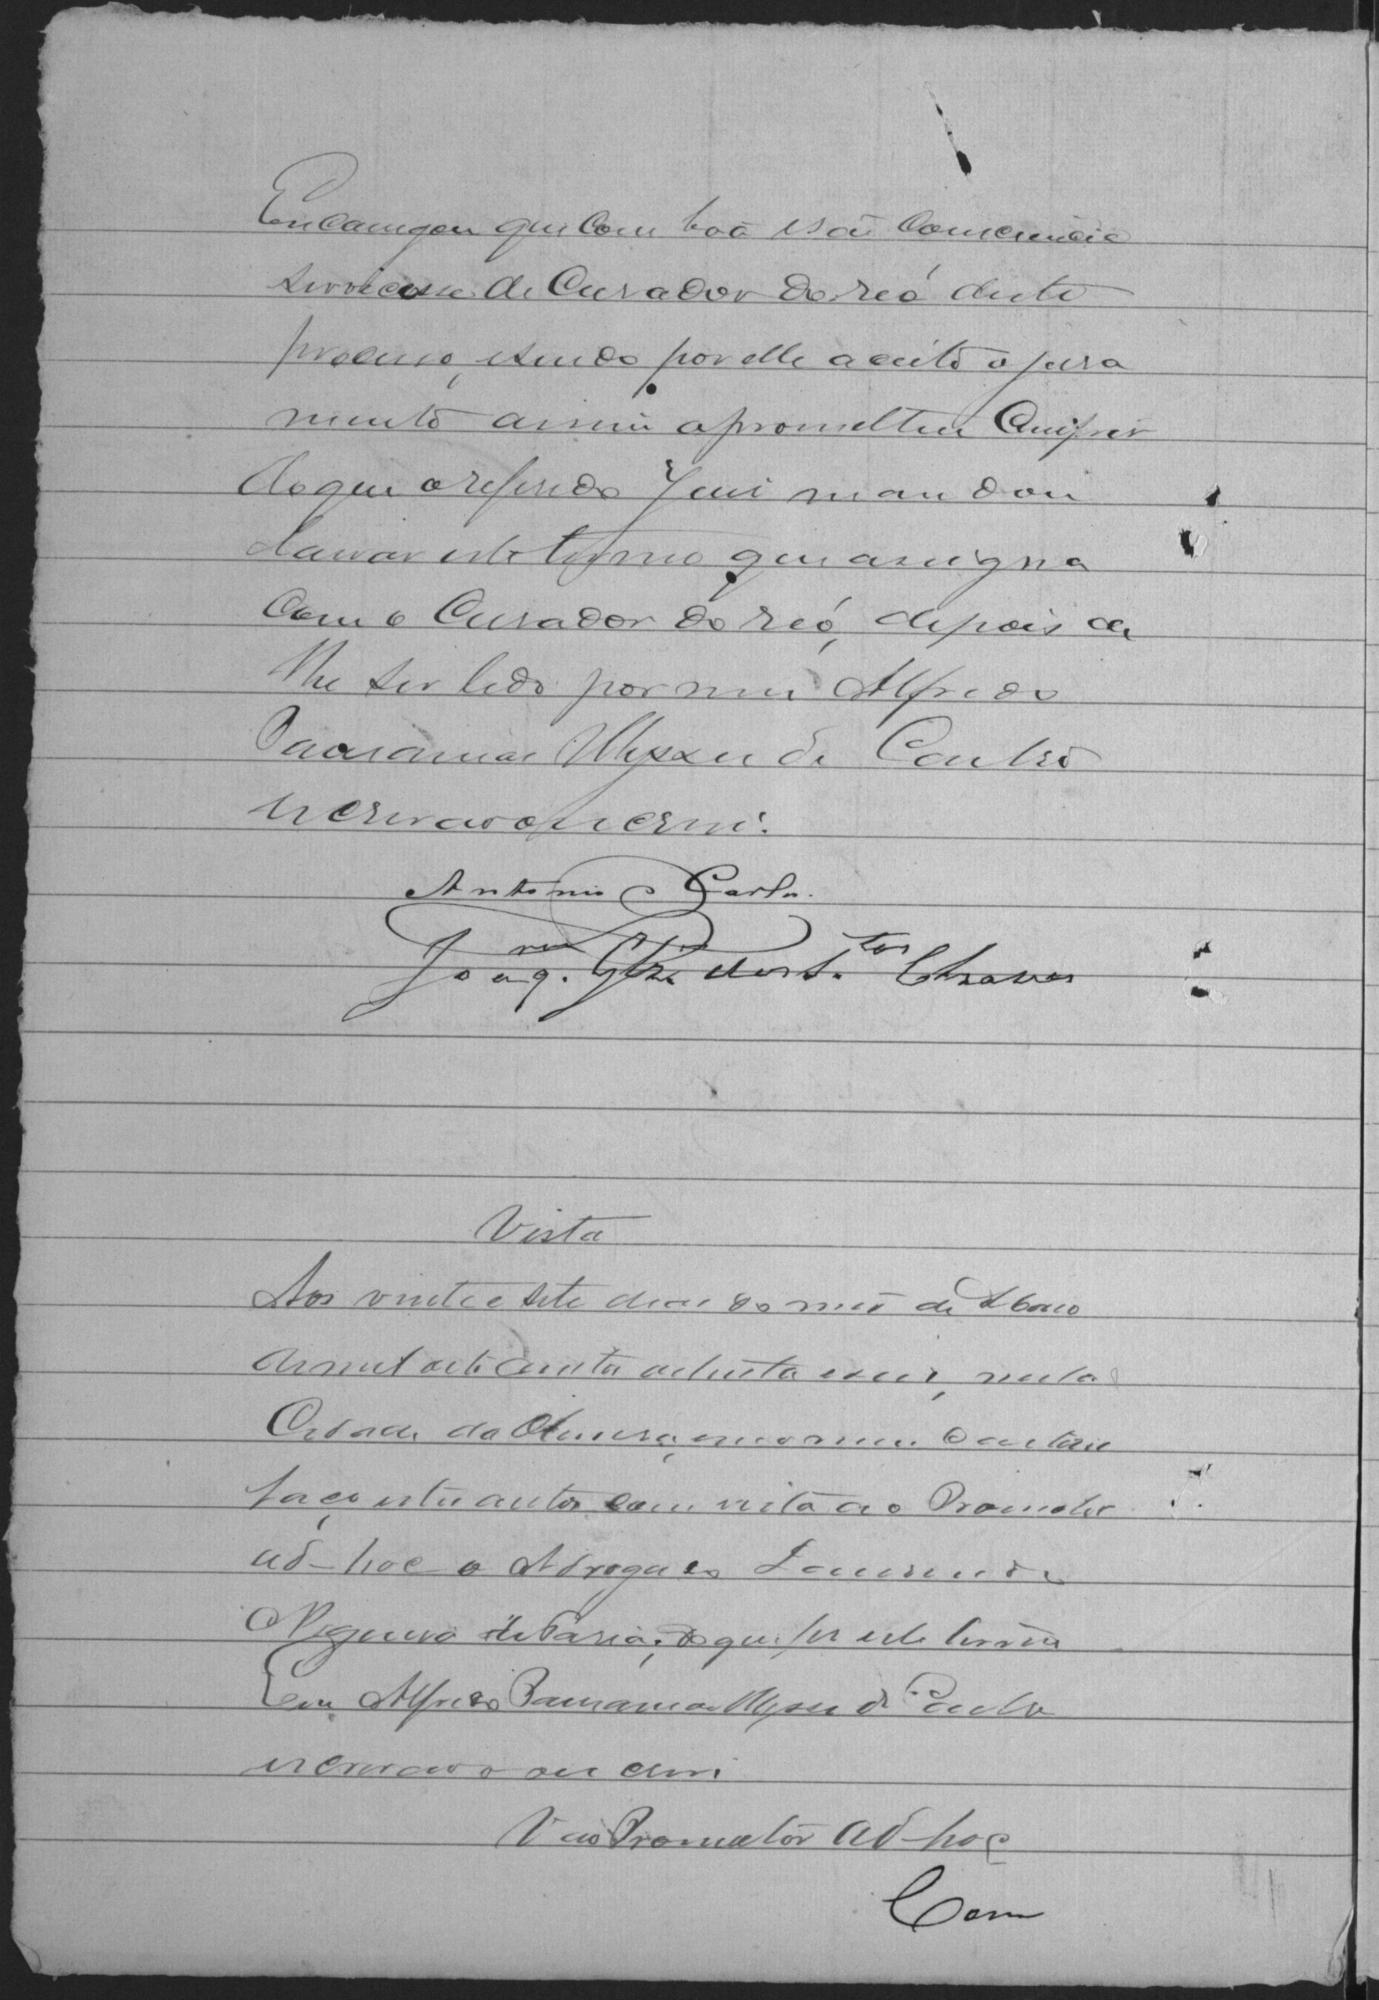 Encarregou que com boa e sã consciencia
servisse de Curador do reó deste
processo, e sendo por elle aceito o jura
mento assim o prometteu cumprir
do que o referido Juiz mandou
lavrar este termo que assigna
com o Curador do reó, depois de
lhe ser lido por mim Alfredo
Ulysses de Castro
escrivão o escrevi.
Antonio Carlos.
Joaq.
Vista
Aos vinte e sete dias do mês de
de mil oito centos oitenta e seis, nesta
Cidade da em meo Cartorio
faço estes autos com vista ao Promotor
ad-hoc o Advogado
Nogueira de Faria; do que fiz este termo
Eu Alfredo Ulysses de Castro
escrivão o escrevi
V ao Promotor ad-hoc
Com